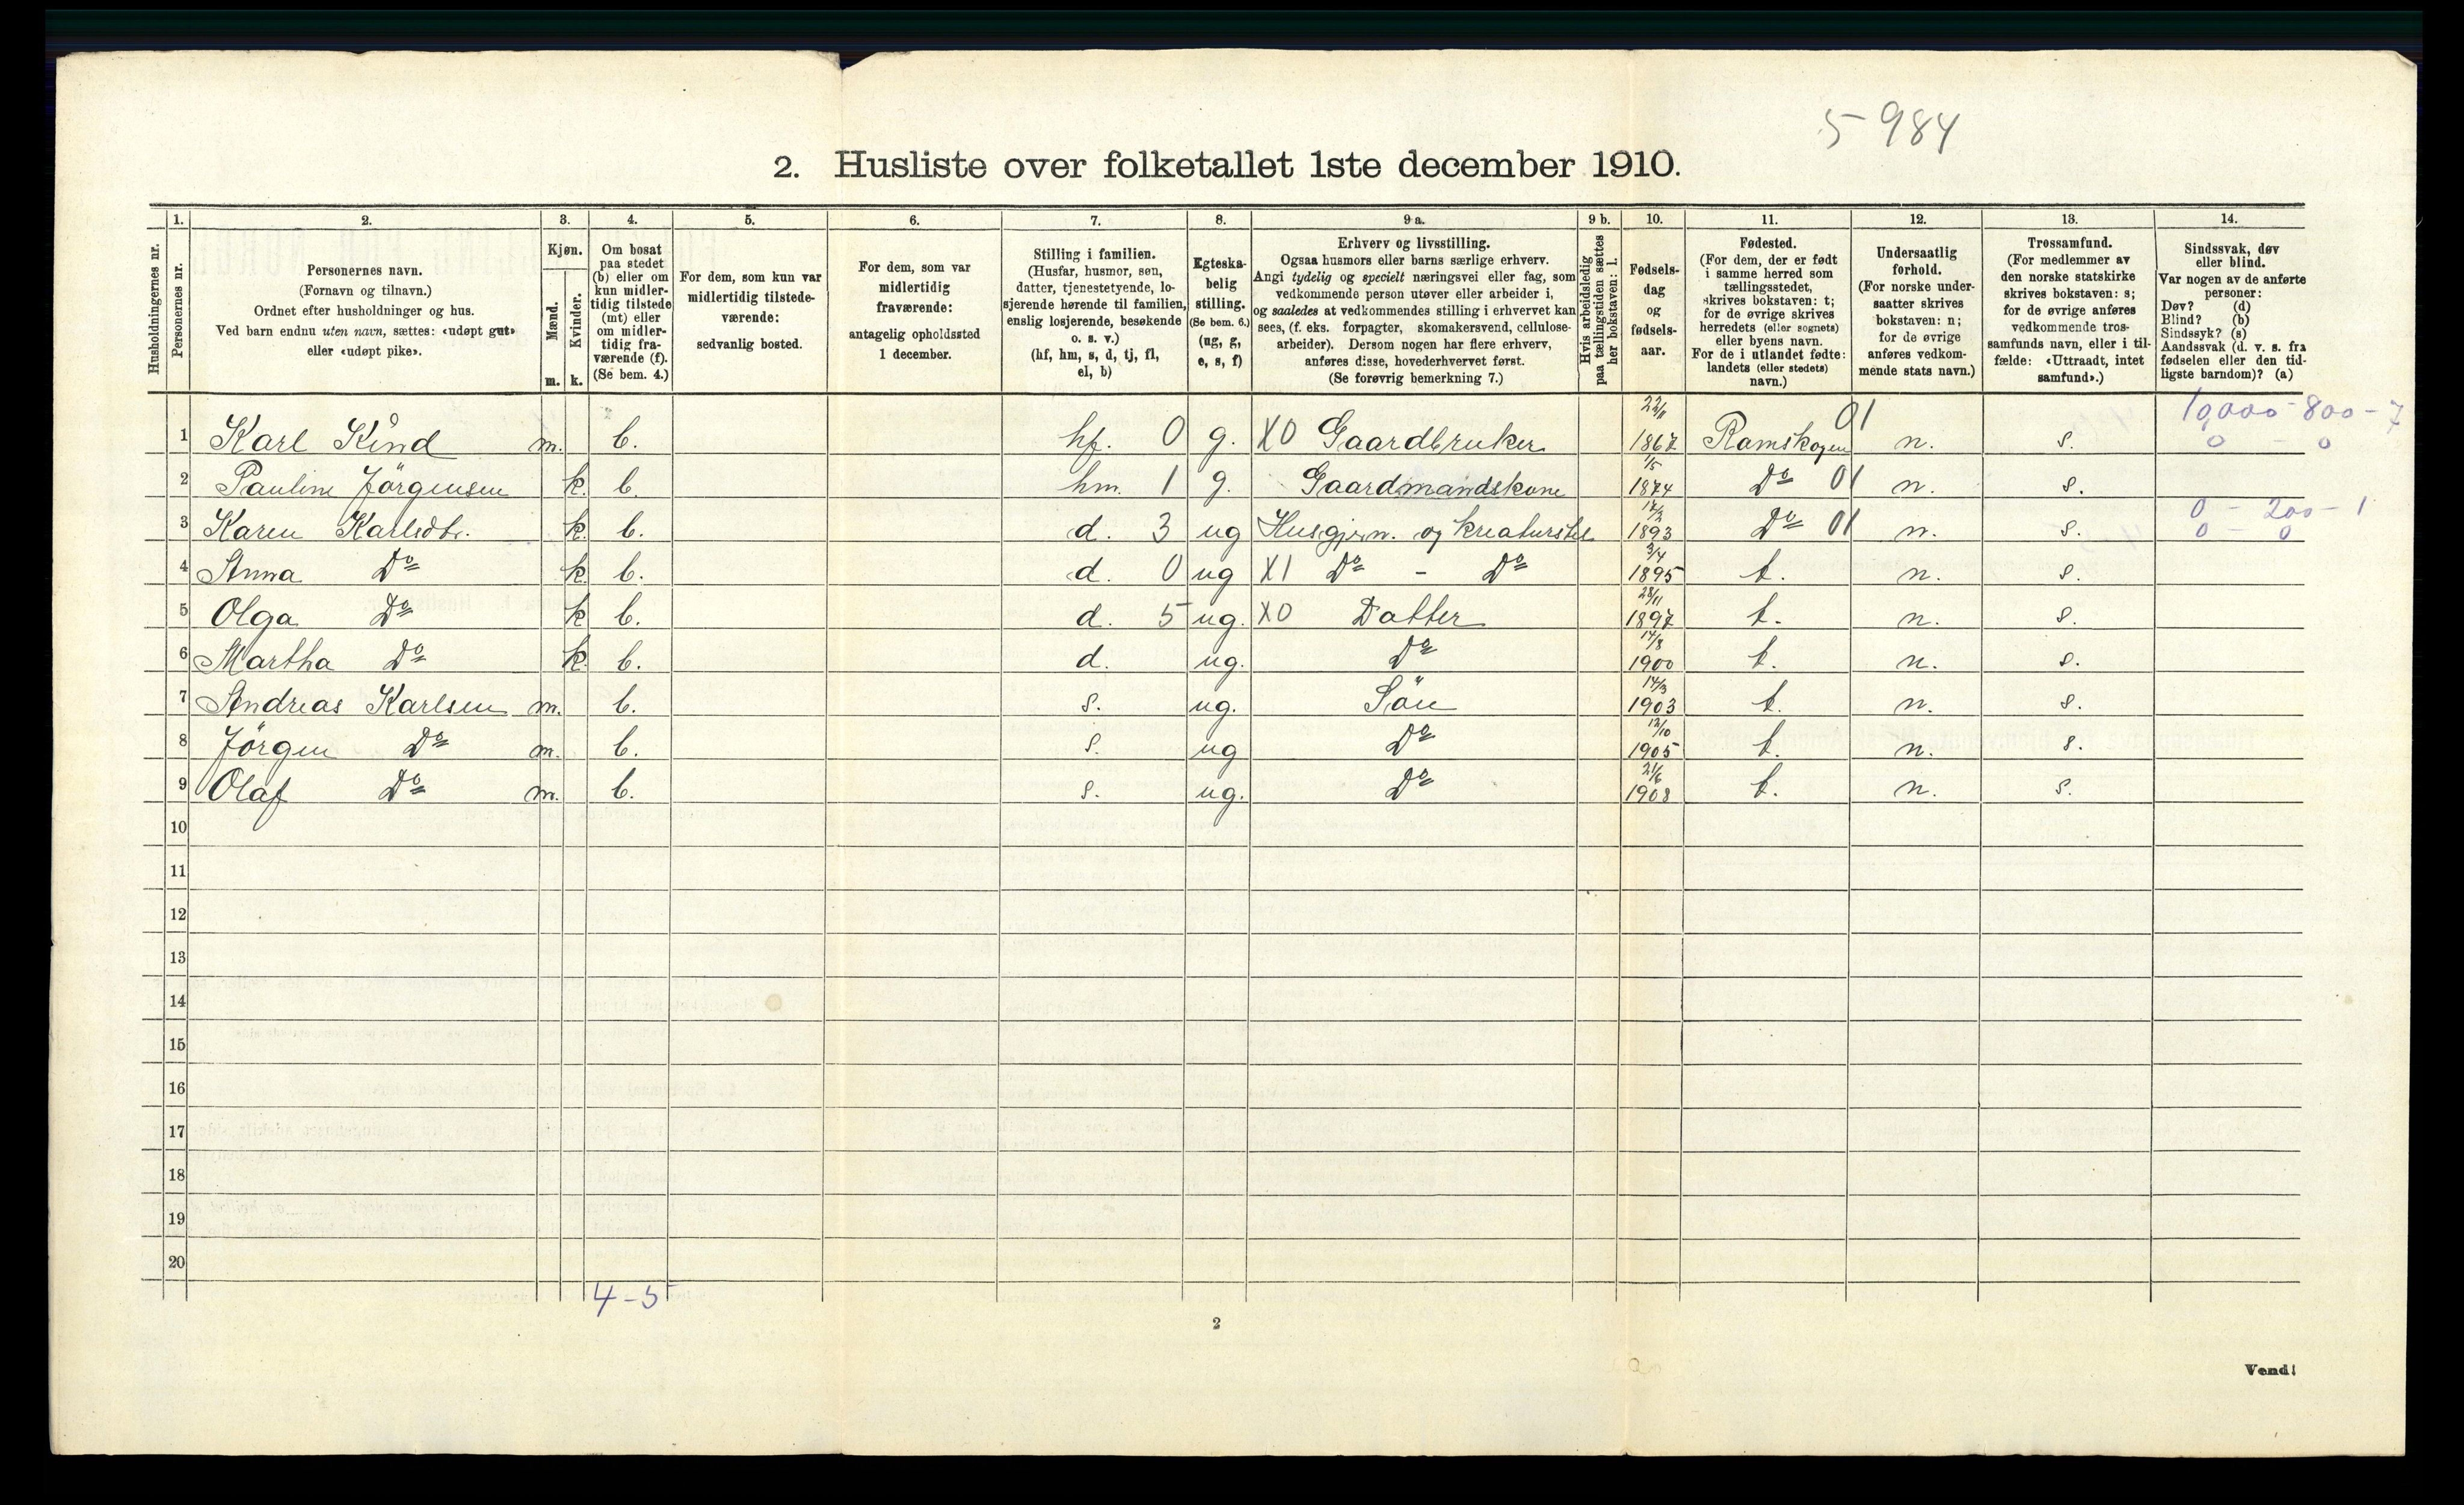 5 984
2. Husliste over folketallet 1ste december 1910.
Husholdningernes nr.
1.
Personernes nr.
2.
Personernes navn.
(Fornavn og tilnavn.)
Ordnet efter husholdninger og hus.
Ved barn endnu uten navn, sættes: «udøpt gut»
eller «udøpt pike».
3.
Kjøn.
Mænd.
Kvinder.
m. k.
4.
Om bosat
paa stedet
(b) eller om
kun midler-
tidig tilstede
(mt) eller
om midler-
tidig fra-
værende (f).
(Se bem. 4.)
5.
For dem, som kun var
midlertidig tilstede-
værende:
sedvanlig bosted.
6.
For dem, som var
midlertidig
fraværende:
antagelig opholdssted
1 december.
7.
Stilling i familien.
(Husfar, husmor, søn,
datter, tjenestetyende, lo-
sjerende hørende til familien,
enslig losjerende, besøkende
o. s. v.)
(hf, hm, s, d, tj, fl,
el, b)
8.
Egteska-
belig
stilling.
(Se bem. 6.)
(ug, g,
e, s, f)
9 a.
Erhverv og livsstilling.
Ogsaa husmors eller barns særlige erhverv.
Angi tydelig og specielt næringsvei eller fag, som
vedkommende person utøver eller arbeider i,
og saaledes at vedkommendes stilling i erhvervet kan
sees, (f. eks. forpagter, skomakersvend, cellulose-
arbeider). Dersom nogen har flere erhverv,
anføres disse, hovederhvervet først.
(Se forøvrig bemerkning 7.)
9 b.
Hvis arbeidsledig
paa tællingstiden sættes
her bokstaven: l.
10.
Fødsels-
dag
og
fødsels-
aar.
11.
Fødested.
(For dem, der er født
i samme herred som
tællingsstedet,
skrives bokstaven: t;
for de øvrige skrives
herredets (eller sognets)
eller byens navn.
For de i utlandet fødte:
landets (eller stedets)
navn.)
12.
Undersaatlig
forhold.
(For norske under-
saatter skrives
bokstaven: n;
for de øvrige
anføres vedkom-
mende stats navn.)
13.
Trossamfund.
(For medlemmer av
den norske statskirke
skrives bokstaven: s;
for de øvrige anføres
vedkommende tros-
samfunds navn, eller i til-
fælde: «Uttraadt, intet
samfund».)
14.
Sindssvak, døv
eller blind.
Var nogen av de anførte
personer:
Døv? (d)
Blind? (b)
Sindssyk? (s)
Aandssvak (d. v. s. fra
fødselen eller den tid-
ligste barndom)? (a)
1 Karl Kind m. b. hf. 0 g. X0 Gaardbruker 1867 Ramskogen 01 n. s. 10,000 - 800 - 7
0 - 0
2 Pauline Jörgensen k. b. hm. 1 g. Gaardmandskone 1/5 1874 Do 01 n. s.
3 Karen Karlsdtr. k. b. d. 3 ug Husgjern. og kreaturstel 1893 Do 01 n. s. 0 - 200 - 1
0 - 0
4 Anna Do k. b. d. 0 ug X1 Do - Do 3/4 1895 t. n. s.
5 Olga Do k b. d. 5 ug. X0 Datter 28/11 1897 t. n. s.
6 Martha Do k. b. d. ug. Do 14/8 1900 t. n. s.
7 Andreas Karlsen m. b. s. ug. Sön 14/3 1903 t. n. s.
8 Jörgen Do m. b. s. ug Do 12/10 1905 t. n. s.
9 Olaf Do m. b. s. ug. Do 21/6 1908 t. n. s.
10
11
12
13
14
15
16
17
18
19
20
4 - 5
2
Vend!